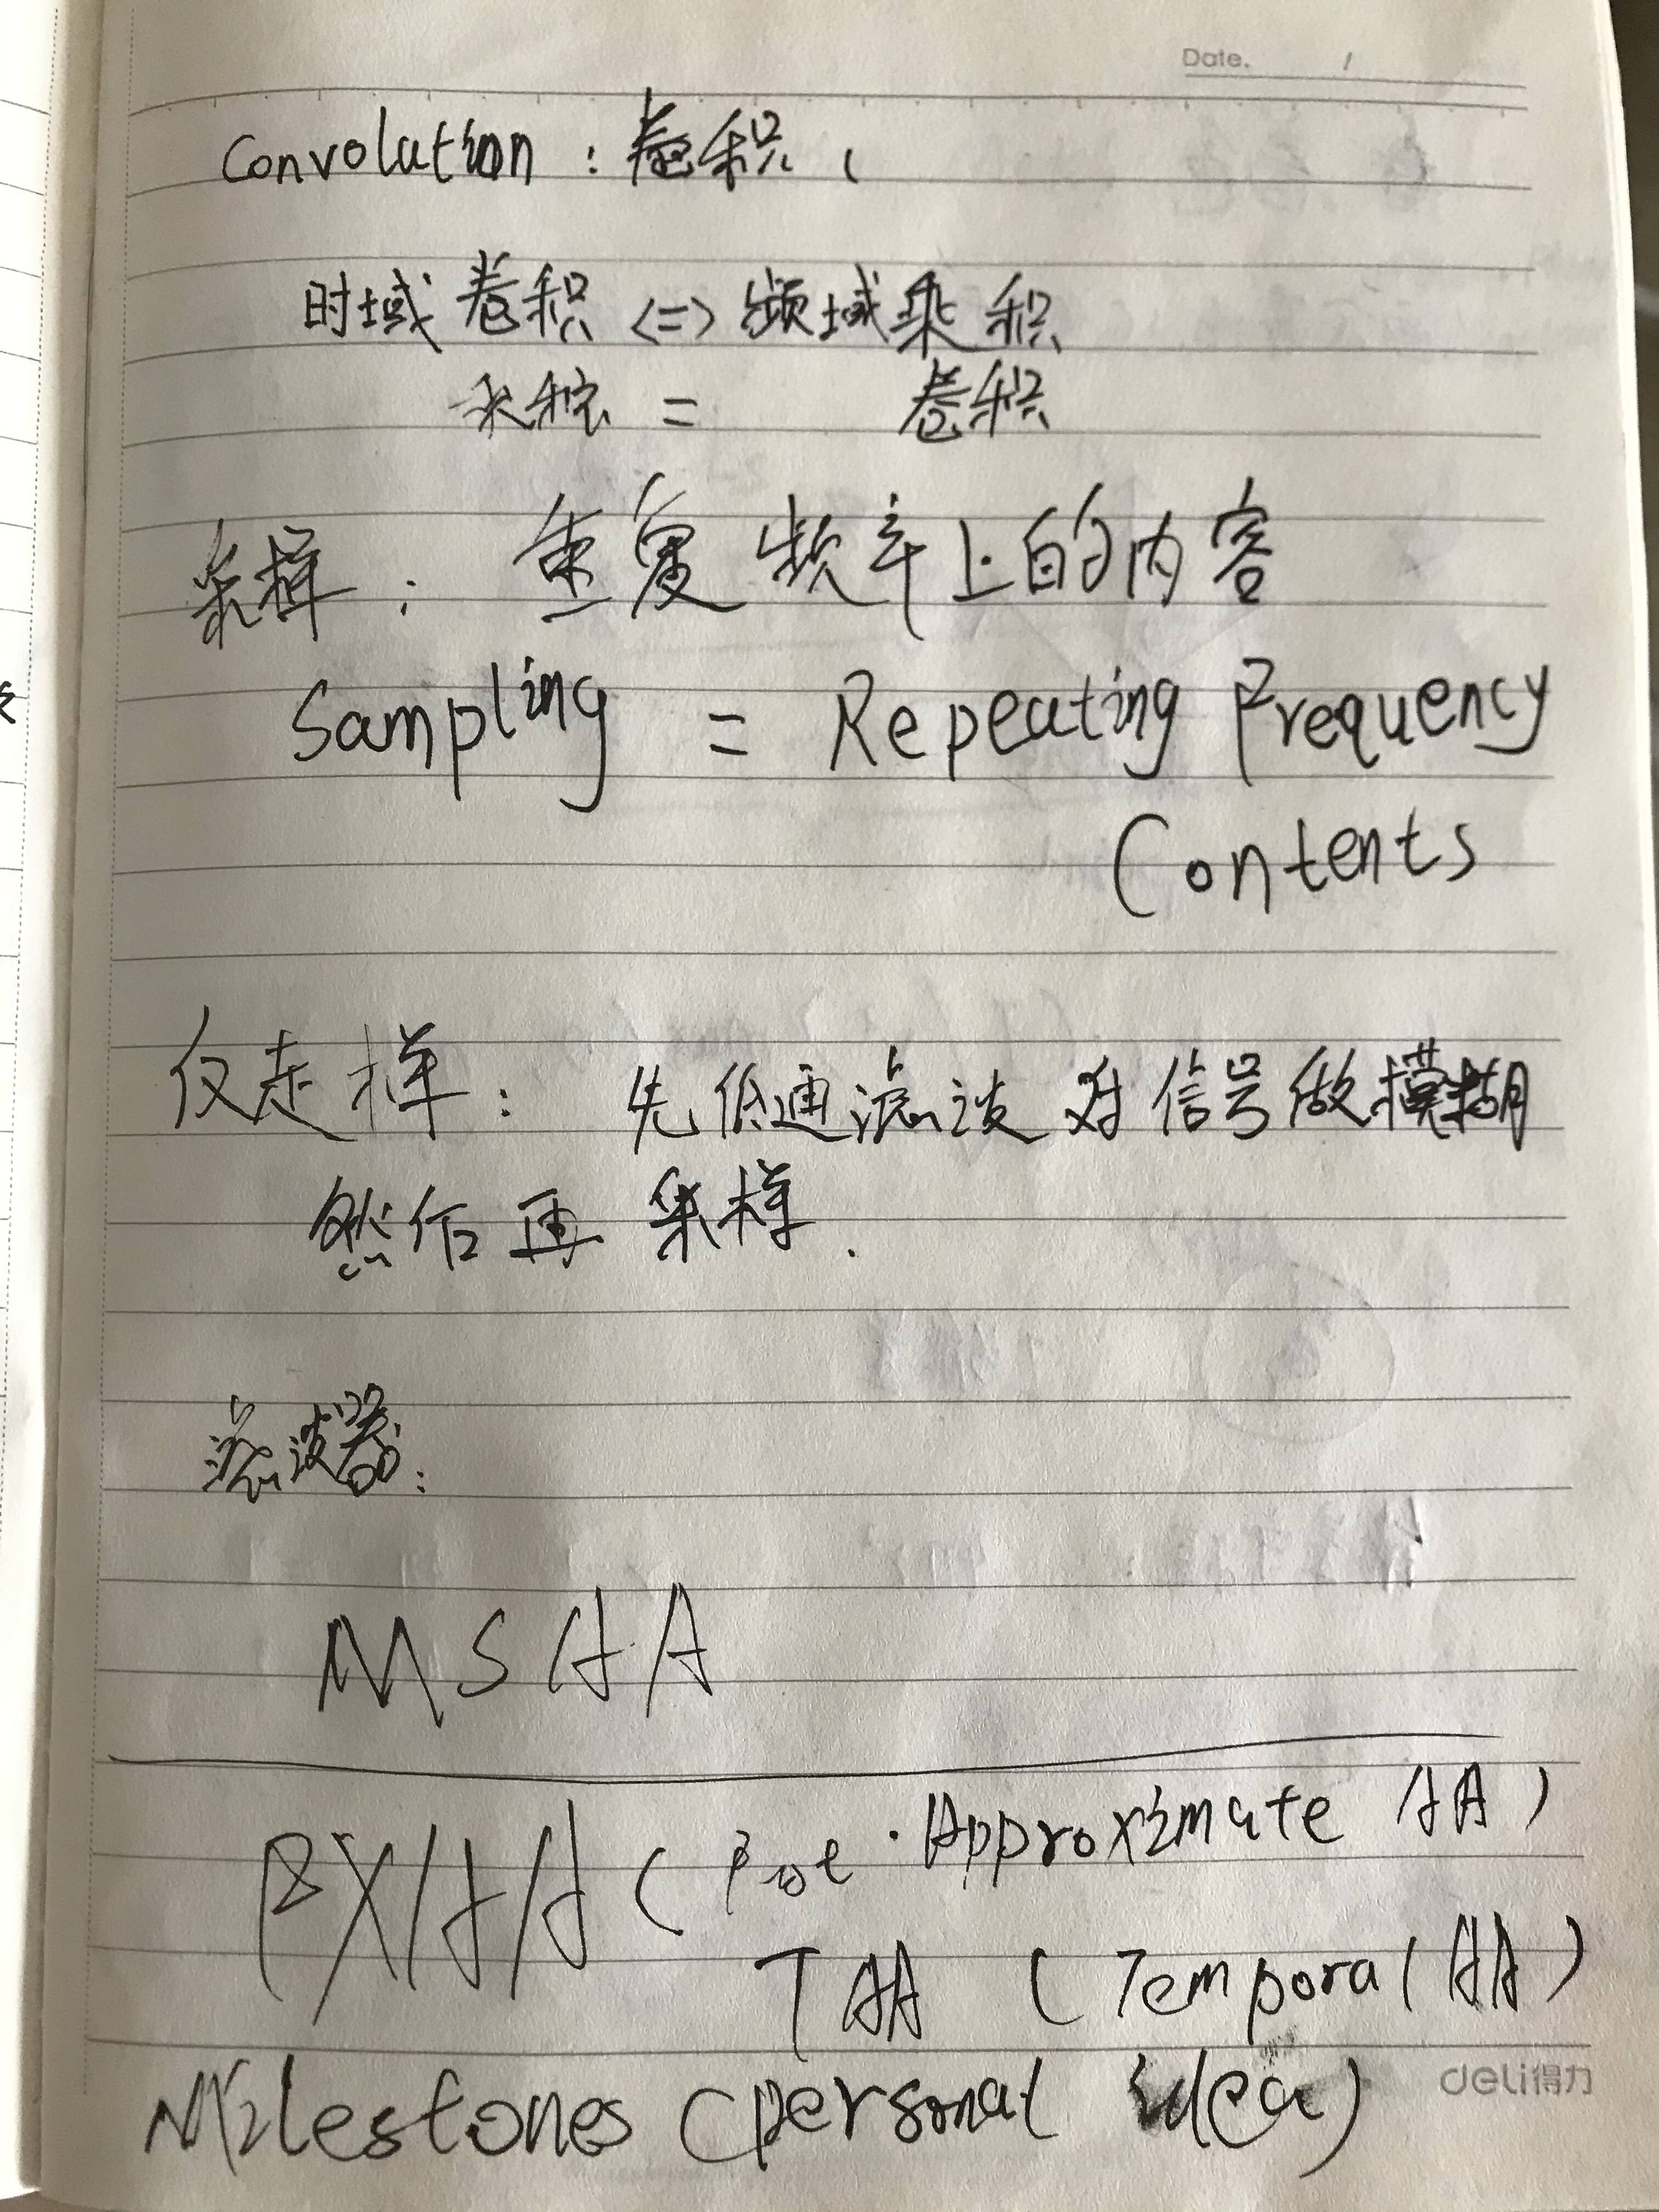 Date. /
Convolution : 卷积、
时域卷积 <=> 频域乘积
乘积 = 卷积
采样: 重复频率上的内容
Sampling = Repeating Frequency
Contents
反走样: 先低通滤波对信号做模糊
然后再采样.
滤波器:
MSAA
FXAA ( Approximate AA )
TAA ( Temporal AA )
Milestones (personal idea)
deli得力